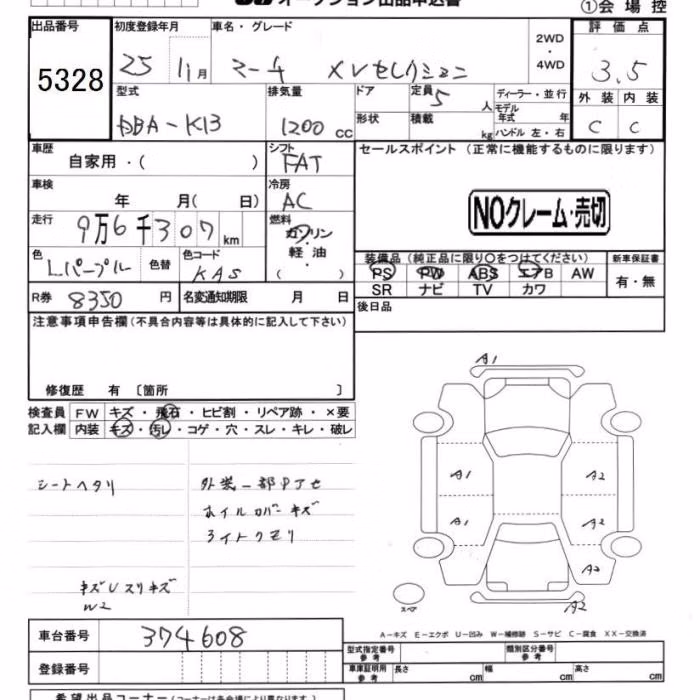 オークション出品申込書
①会場控
出品番号
5328
初度登録年月
25 11月
車名・グレード
マーチ XVセレクション
2WD
・
4WD
評価点
3.5
外装 内装
C C
型式
DBA-K13
排気量
1200 cc
ドア
形状
定員
5 人
積載 kg
ディーラー・並行
モデル年式 年
ハンドル 左・右
車歴
自家用・( )
シフト
FAT
セールスポイント (正常に機能するものに限ります)
NOクレーム・売切
車検
年 月( 日)
冷房
AC
走行
9万6千307km
燃料
ガソリン
・
軽油
( )
色
Lパープル
色替
色コード
KAS
装備品(純正品に限り○をつけてください)
PS PW ABS エアB AW
SR ナビ TV カワ
新車保証書
有・無
R券 8350 円
名変通知期限 月 日
後日品
注意事項申告欄(不具合内容等は具体的に記入して下さい)
修復歴 有 〔箇所 〕
検査員 FW キズ・飛石・ヒビ割・リペア跡・×要
記入欄 内装 キズ・汚レ・コゲ・穴・スレ・キレ・破レ
シートヘタリ
外装一部アセ
ホイルカバーキズ
ライトクモリ
キズUスリキズ
W2
A1
A1 A2
A1 A2
A2
A2
スペア
A-キズ E-エクボ U-凹み W-補修跡 S-サビ C-腐食 XX-交換済
車台番号 374608
登録番号
型式指定番号
参考
類別区分番号
参考
車庫証明用
参考
長さ cm 幅 cm 高さ cm
希望出品コーナー(コーナーは各会場により異なります)